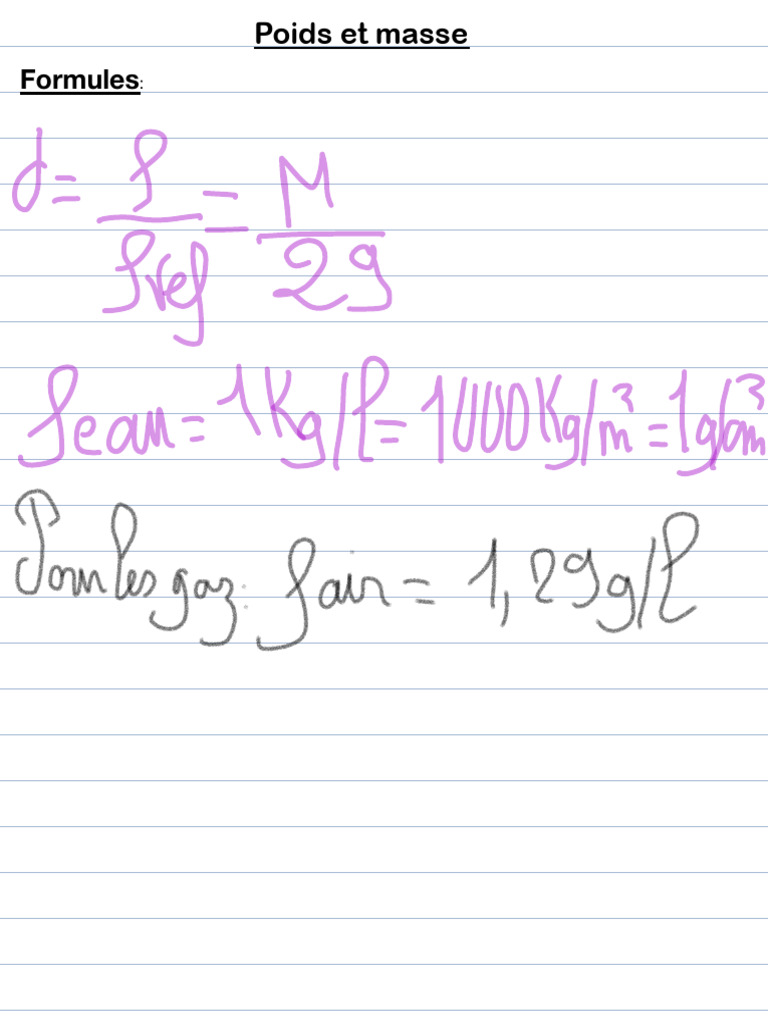 Poids et masse
Formules:
d = ρ/ρref = M/29
ρeau = 1Kg/l = 1000Kg/m³ = 1g/cm³
Pour les gaz: ρair = 1,29g/l